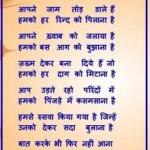 आपने जाम तोड़ डाले हैं
हमको हर रिन्द को पिलाना है
आपने ख़्वाब को जलाया है
हमको बस आग को बुझाना है
ज़ख़्म देकर बना दिये हैं जो
हमको हर दाग को मिटाना है
आप उड़ते रहो परिंदों में
हमको पिंजड़े में कसमसाना है
हमसे रुसवा किया गया है जिन्हें
उनको देकर सदा बुलाना है
बात करके भी फिर नहीं आना